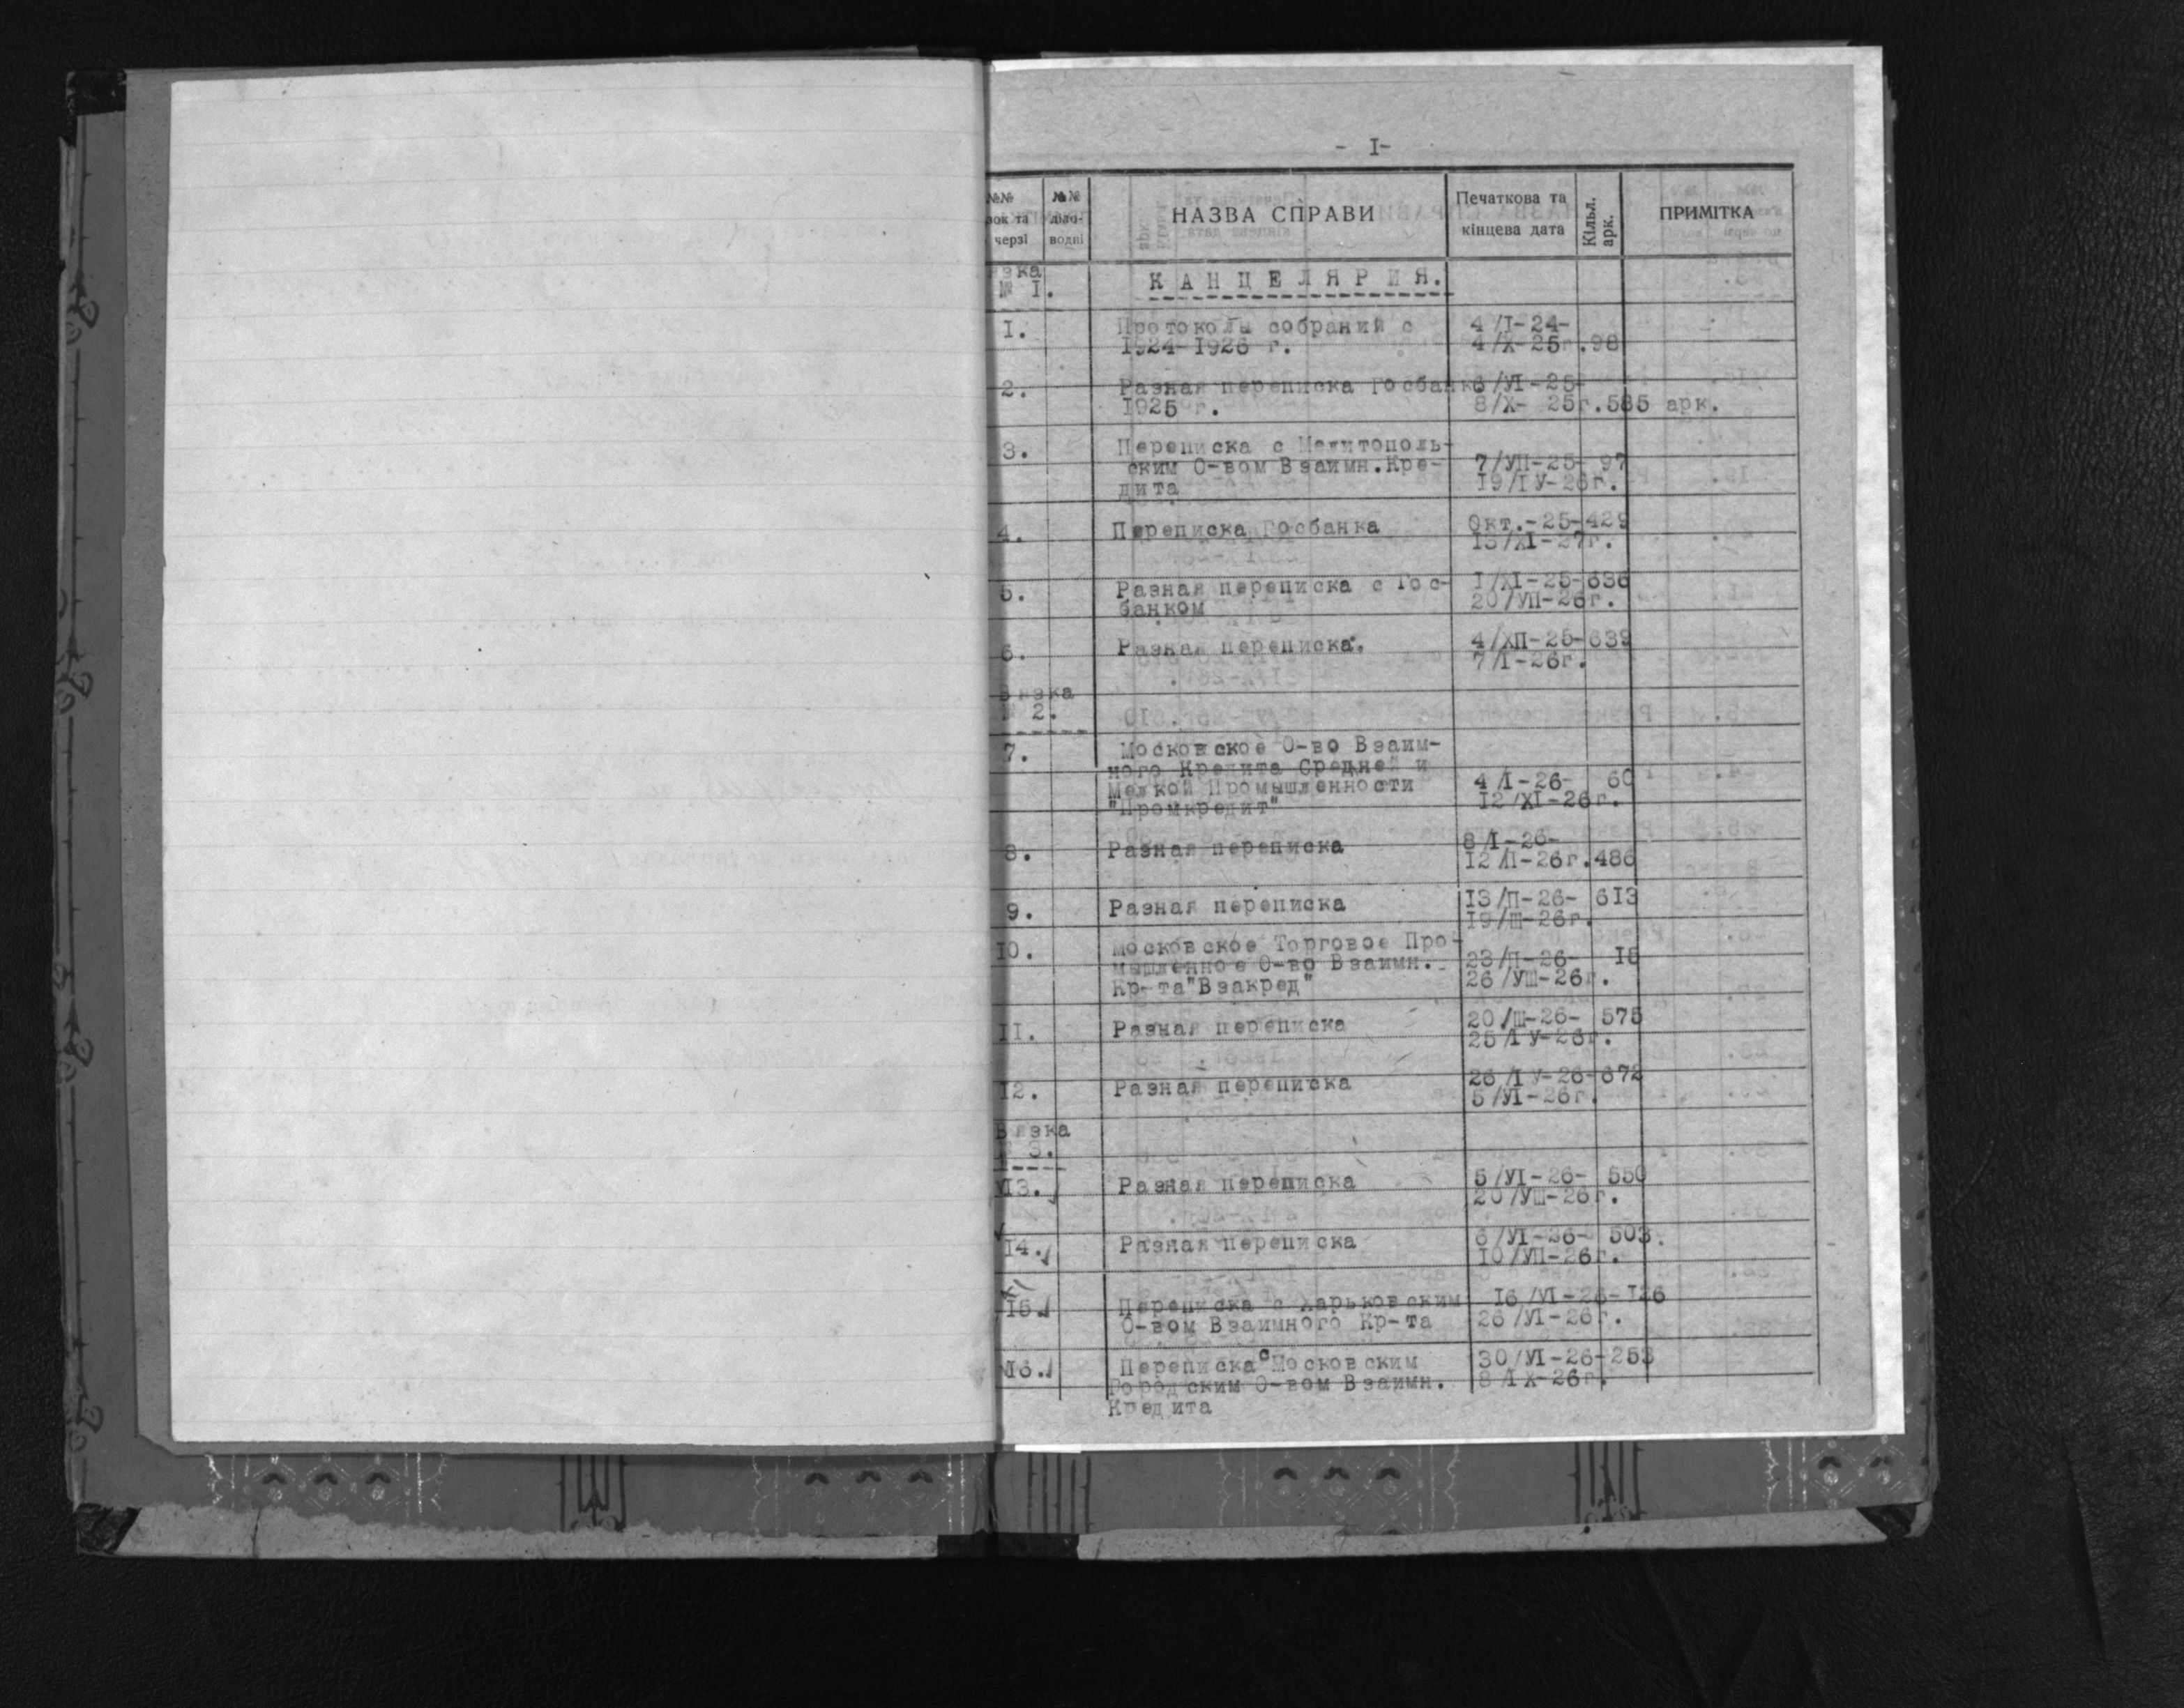 - I-
№№ №№ НАЗВА СПРАВИ Печаткова та кінцева дата Кільл. арк. ПРИМІТКА
зок та черзі діло- водні
язка
№ I. КАНЦЕЛЯРИЯ.
I. Протоколы собраний с 4/I-24-
1924-1926 г. 4/X-25г.98
2. Разная переписка Госбанка 6/УI-25-
1925 г. 8/X- 25г.585 арк.
3. Переписка с Мелитополь-
ским О-вом Взаимн.Кре- 7/УП-25- 97
дита 19/IУ-26г.
4. Переписка Госбанка Окт.-25-429
13/XI-27г.
5. Разная переписка с Гос- I/XI-25-636
банком 20/УП-26г.
6. Разная переписка. 4/ХП-25-639
7/I-26г.
Вязка
№ 2.
7. Московское О-во Взаим-
ного Кредита Средней и
Мелкой Промышленности 4/I-26- 60
"Промкредит" 12/XI-26г.
8. Разная переписка 8/I-26-
12/П-26г.486
9. Разная переписка 13/П-26- 613
19/Ш-26г.
10. Московское Торговое Про-
мышленное О-во Взаимн. 23/П-26- 15
Кр-та"Взакред" 26/УШ-26г.
11. Разная переписка 20/Ш-26- 575
25/IУ-26г.
12. Разная переписка 26/IУ-26-672
5/УI-26г.
Вязка
№ 3.
13. Разная переписка 5/УI-26- 550
20/УШ-26г.
14. Разная переписка 6/УI-26- 503.
10/УП-26г.
15. Переписка с Харьковским 16/УI-26-126
О-вом Взаимного Кр-та 26/УI-26г.
16. Переписка с Московским 30/УI-26-253
Городским О-вом Взаимн. 8/IX-26г.
Кредита